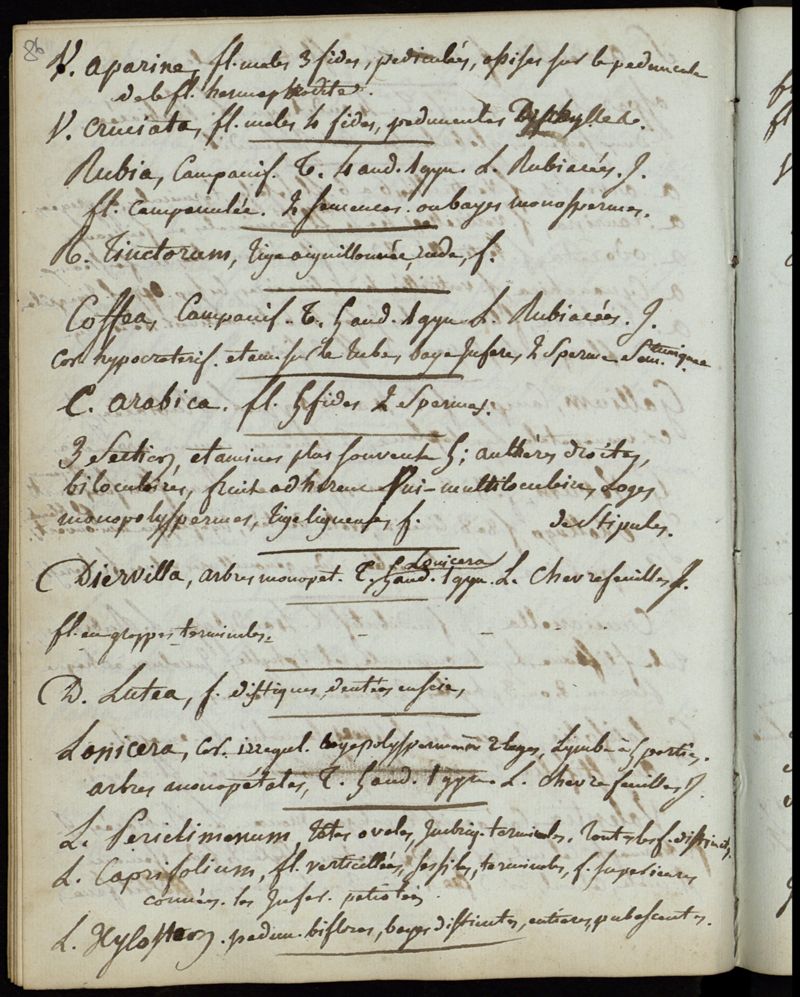 86
V. aparine, fl. males 3 fides, pediculées, assises sur le peduncule
de le fl. hermaphrodite.
V. Cruciata, fl. males 4 fides, peduncules Diphylles.
Rubia, Campanif. T. 4 and. 1 gyn. L. Rubiacées. J.
fl. campanulée. 2 semences. ou bayes monospermes.
R. Tinctorum, tige aiguillonnée, rude, f.
Coffea, Campanif. T. 5 and. 1 gyn. L. Rubiacées. J.
Cor. hypocraterif. etam. sur le tube, baye infere, 2 sperme Sem. tuniquée
C. arabica. fl. 5 fides 2 spermes.
3 Section, etamines plus souvent 5; anthéres droites,
biloculaires, fruit adherent uni-multiloculaire, Loges
monopolyspermes, tige ligneuse, f. de Stipules.
Diervilla, arbres monopet. T. Lonicera 5 and. 1 gyn. L. Chevrefeuilles J.
fl. en grappes terminales.
D. Lutea, f. distiques, dentées en scie,
Lonicera, Cor. irregul. baye polysperme 2 loges, Lymbe à 5 parties.
arbres monopétales, T. 5 and. 1 gyn. L. Chevrefeuilles J.
L. Periclimenum, têtes ovales, imbriq. terminales. Toutes les f. distinctes.
L. Caprifolium, fl. verticillées, sessiles, terminales, f. superieures
connées. les infer. petiolées.
L. Xylosteon. pedun. biflores, bayes distinctes, entieres, pubescentes.